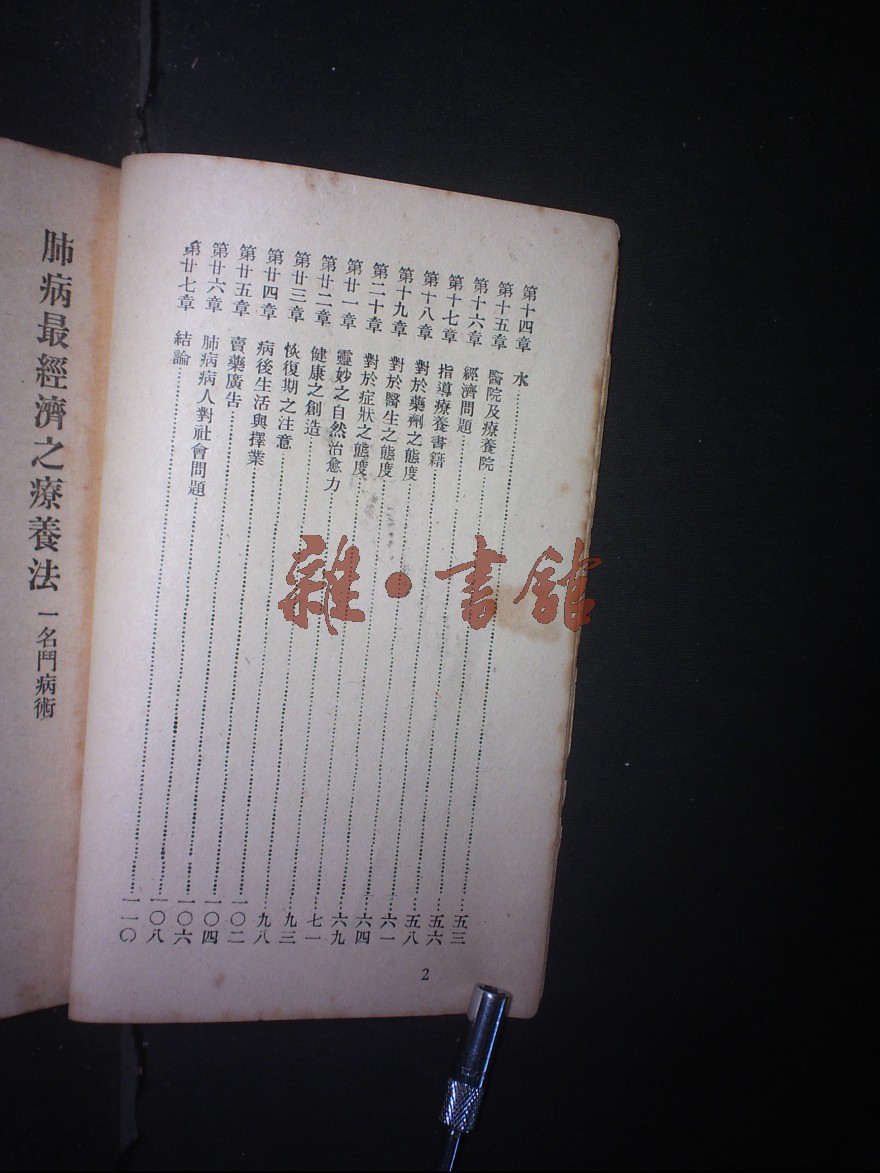 第十四章 水……五三
第十五章 醫院及療養院……五六
第十六章 經濟問題……五八
第十七章 指導療養書籍……六一
第十八章 對於藥劑之態度……六四
第十九章 對於醫生之態度……六九
第二十章 對於症狀之態度……七一
第廿一章 靈妙之自然治愈力……九三
第廿二章 健康之創造……九八
第廿三章 恢復期之注意……一〇二
第廿四章 病後生活與擇業……一〇四
第廿五章 賣藥廣告……一〇六
第廿六章 肺病病人對社會問題……一〇八
第廿七章 結論……一一〇
2
肺病最經濟之療養法 一名鬥病術
雜·書館